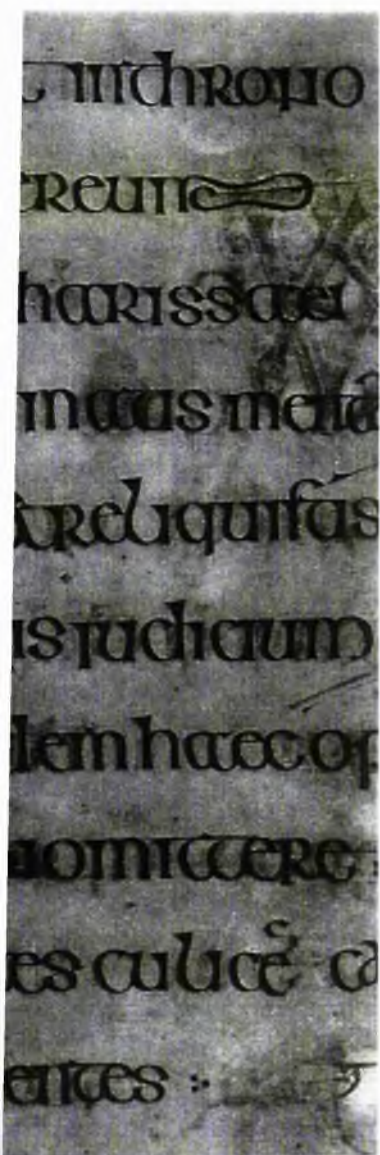 t inthrono
ereum
harissaei
matis mentā
reliquistis
is iudicium
dem haec op
nomittere
es culicē ca
entes :·